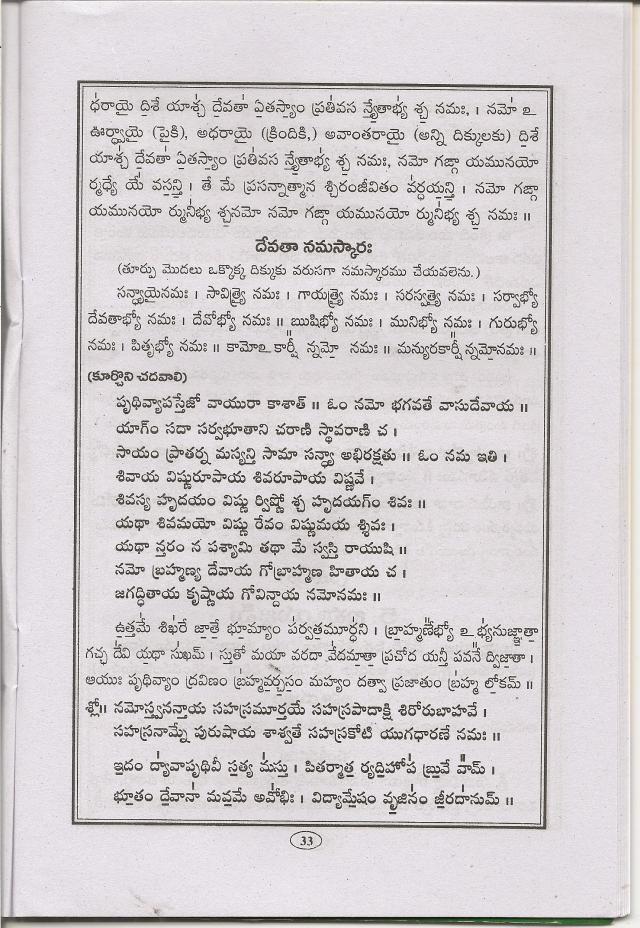 ధ॑రాయై ది॒శే యాశ్చ॑ దే॒వతా॑ ఏ॒తస్యాం॒ ప్రతి॑వస న్త్యే॒తాభ్య॑ శ్చ॒ నమః॒, । నమో॑ ఽ
ఊర్ధ్వా॒యై (పైకి), అధరాయై (క్రిందికి,) అవాంతరాయై (అన్ని దిక్కులకు) ది॒శే
యాశ్చ॑ దే॒వతా॑ ఏ॒తస్యాం॒ ప్రతి॑వస న్త్యే॒తాభ్య॑ శ్చ॒ నమః॒, నమో గఙ్గా యమునయో
ర్మధ్యే యే॑ వస॒న్తి॒ । తే మే ప్రసన్నాత్మాన శ్చిరంజీవితం వ॑ర్ధయ॒న్తి॒ । నమో గఙ్గా
యమునయో ర్ముని॑భ్య శ్చ॒నమో నమో గఙ్గా యమునయో ర్ముని॑భ్య శ్చ॒ నమః ॥
దేవతా నమస్కారః
(తూర్పు మొదలు ఒక్కొక్క దిక్కుకు వరుసగా నమస్కారము చేయవలెను.)
సన్ధ్యాయైనమః । సావిత్ర్యై నమః । గాయత్ర్యై నమః । సరస్వత్యై నమః । సర్వాభ్యో
దేవతాభ్యో నమః । దేవోభ్యో నమః ॥ ఋషిభ్యో నమః । మునిభ్యో నమః । గురుభ్యో
నమః । పితృభ్యో నమః ॥ కామోఽ కార్షీ న్నమో॒ నమః ॥ మన్యురకార్షీ న్నమో॒నమః ॥
(కూర్చొని చదవాలి)
పృథివ్యాపస్తేజో వాయురా కాశాత్ ॥ ఓం నమో భగవతే వాసుదేవాయ ॥
యాగ్ం సదా సర్వభూతాని చరాణి స్థావరాణి చ ।
సాయం ప్రాతర్న మస్యన్తి సామా సన్ధ్యా అభిరక్షతు ॥ ఓం నమ ఇతి ।
శివాయ విష్ణురూపాయ శివరూపాయ విష్ణవే ।
శివస్య హృదయం విష్ణు ర్విష్ణో శ్చ హృదయగ్ం శివః ॥
యథా శివమయో విష్ణు రేవం విష్ణుమయ శ్శివః ।
యథా న్తరం న పశ్యామి తథా మే స్వస్తి రాయుషి ॥
నమో బ్రహ్మణ్య దేవాయ గోబ్రాహ్మణ హితాయ చ ।
జగద్ధితాయ కృష్ణాయ గోవిన్దాయ నమోనమః ॥
ఉ॒త్తమే॑ శిఖ॑రే జా॒తే భూ॒మ్యాం ప॑ర్వత॒మూర్ధ॑ని । బ్రా॒హ్మణే॑భ్యో ఽ భ్య॑నుజ్ఞా॒తా॒
గ॒చ్ఛ దే॑వి య॒థా సు॑ఖమ్ । స్తుతో మయా వరదా వే॑దమా॒తా॒ ప్రచోద యన్తీ పవనే॑ ద్విజా॒తా ।
ఆయుః పృథివ్యాం ద్రవిణం బ్ర॑హ్మవ॒ర్చ॒సం॒ మహ్యం దత్వా ప్రజాతుం బ్ర॑హ్మ లో॒కమ్ ॥
శ్లో॥ నమోస్త్వనన్తాయ సహస్రమూర్తయే సహస్రపాదాక్షి శిరోరుబాహవే ।
సహస్రనామ్నే పురుషాయ శాశ్వతే సహస్రకోటి యుగధారణే నమః ॥
ఇ॒దం ద్యా॑వాపృథివీ స॒త్య మ॑స్తు॒ । పిత॒ర్మాత॒ ర్యది॒హోప॑ బ్రు॒వే వా॑మ్ ।
భూ॒తం దే॒వానా॑ మవ॒మే అవో॑భిః । విద్యామే॒షం వృ॒జినం॑ జీ॒రదా॑నుమ్ ॥
33